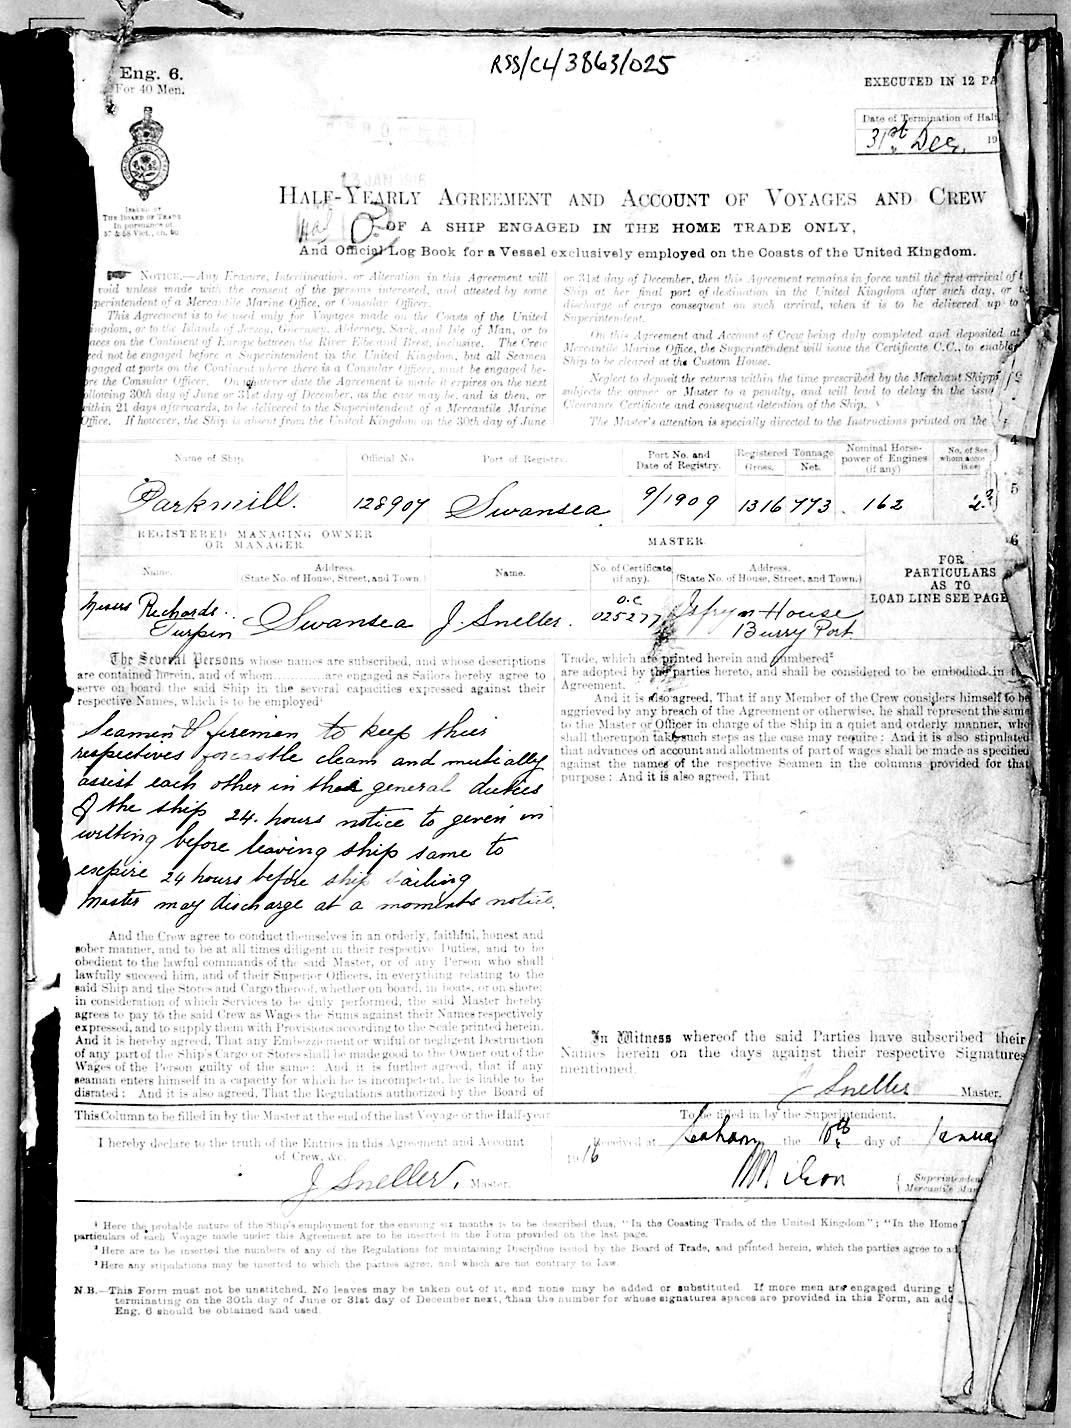 RSS/CL/3863/025
Eng. 6.
For 40 Men.
EXECUTED IN 12 PA
Date of Termination of Half
31st Dec. 19
ISSUED BY
THE BOARD OF TRADE
In pursuance of
57 & 58 Vict., ch. 60
13 JAN 1916
HALF-YEARLY AGREEMENT AND ACCOUNT OF VOYAGES AND CREW
OF A SHIP ENGAGED IN THE HOME TRADE ONLY,
And Official Log Book for a Vessel exclusively employed on the Coasts of the United Kingdom.
NOTICE.—Any Erasure, Interlineation, or Alteration in this Agreement will
void unless made with the consent of the persons interested, and attested by some
perintendent of a Mercantile Marine Office, or Consular Officer.
This Agreement is to be used only for Voyages made on the Coasts of the United
ingdom, or to the Islands of Jersey, Guernsey, Alderney, Sark, and Isle of Man, or to
aces on the Continent of Europe between the River Elbe and Brest, inclusive. The Crew
eed not be engaged before a Superintendent in the United Kingdom, but all Seamen
ngaged at ports on the Continent where there is a Consular Officer, must be engaged be-
ore the Consular Officer. On whatever date the Agreement is made it expires on the next
ollowing 30th day of June or 31st day of December, as the case may be, and is then, or
within 21 days afterwards, to be delivered to the Superintendent of a Mercantile Marine
Office. If however, the Ship is absent from the United Kingdom on the 30th day of June
or 31st day of December, then this Agreement remains in force until the first arrival of t
Ship at her final port of destination in the United Kingdom after such day, or t
discharge of cargo consequent on such arrival, when it is to be delivered up to
Superintendent.
On this Agreement and Account of Crew being duly completed and deposited at
Mercantile Marine Office, the Superintendent will issue the Certificate C.C., to enable
Ship to be cleared at the Custom House.
Neglect to deposit the returns within the time prescribed by the Merchant Shipp
subjects the owner or Master to a penalty, and will lead to delay in the issu
Clearance Certificate and consequent detention of the Ship.
The Master's attention is specially directed to the Instructions printed on the
4
5
6
Name of Ship.
Official No.
Port of Registry.
Port No. and
Date of Registry.
Registered Tonnage
Gross.
Net.
Nominal Horse-
power of Engines
(if any)
No. of Sea
Parkmill.
128907
Swansea
9/1909
1316
773
162
REGISTERED MANAGING OWNER
OR MANAGER
MASTER
Name.
Address.
(State No. of House, Street, and Town.)
Name.
No. of Certificate
(if any).
Address.
(State No. of House, Street, and Town.)
FOR
PARTICULARS
AS TO
LOAD LINE SEE PAGE
Messrs Richards.
Turpin
Swansea
J. Sneller.
O.C
025277
House
Burry Port
The Several Persons whose names are subscribed, and whose descriptions
are contained herein, and of whom..........are engaged as Sailors hereby agree to
serve on board the said Ship in the several capacities expressed against their
respective Names, which is to be employed¹
Seamen & firemen to keep thier
respectives forcastle clean and mutially
assist each other in the general duties
of the ship 24. hours notice to given in
writing before leaving ship same to
expire 24 hours before ship sailing
Master may discharge at a moments notice.
And the Crew agree to conduct themselves in an orderly, faithful, honest and
sober manner, and to be at all times diligent in their respective Duties, and to be
obedient to the lawful commands of the said Master, or of any Person who shall
lawfully succeed him, and of their Superior Officers, in everything relating to the
said Ship and the Stores and Cargo thereof, whether on board, in boats, or on shore;
in consideration of which Services to be duly performed, the said Master hereby
agrees to pay to the said Crew as Wages the Sums against their Names respectively
expressed, and to supply them with Provisions according to the Scale printed herein.
And it is hereby agreed, That any Embezzlement or wilful or negligent Destruction
of any part of the Ship's Cargo or Stores shall be made good to the Owner out of the
Wages of the Person guilty of the same: And it is further agreed, that if any
seaman enters himself in a capacity for which he is incompetent, he is liable to be
disrated: And it is also agreed, That the Regulations authorized by the Board of
Trade, which are printed herein and numbered²
are adopted by the parties hereto, and shall be considered to be embodied in t
Agreement.
And it is also agreed, That if any Member of the Crew considers himself to be
aggrieved by any breach of the Agreement or otherwise, he shall represent the same
to the Master or Officer in charge of the Ship in a quiet and orderly manner, who
shall thereupon take such steps as the case may require: And it is also stipulated
that advances on account and allotments of part of wages shall be made as specified
against the names of the respective Seamen in the columns provided for that
purpose: And it is also agreed, That
In Witness whereof the said Parties have subscribed their
Names herein on the days against their respective Signatures
mentioned.
J Sneller Master.
This Column to be filled in by the Master at the end of the last Voyage or the Half-year
I hereby declare to the truth of the Entries in this Agreement and Account
of Crew, &c.
J Sneller. Master.
To be filled in by the Superintendent.
Received at Seaham the 10th day of Janua
1916
Superintenden
Mercantile Mar
¹ Here the probable nature of the Ship's employment for the ensuing six months is to be described thus, "In the Coasting Trade of the United Kingdom"; "In the Home T
particulars of each Voyage made under this Agreement are to be inserted in the Form provided on the last page.
² Here are to be inserted the numbers of any of the Regulations for maintaining Discipline issued by the Board of Trade, and printed herein, which the parties agree to ad
³ Here any stipulations may be inserted to which the parties agree, and which are not contrary to Law.
N.B.—This Form must not be unstitched. No leaves may be taken out of it, and none may be added or substituted. If more men are engaged during t
terminating on the 30th day of June or 31st day of December next, than the number for whose signatures spaces are provided in this Form, an add
Eng. 6 should be obtained and used.